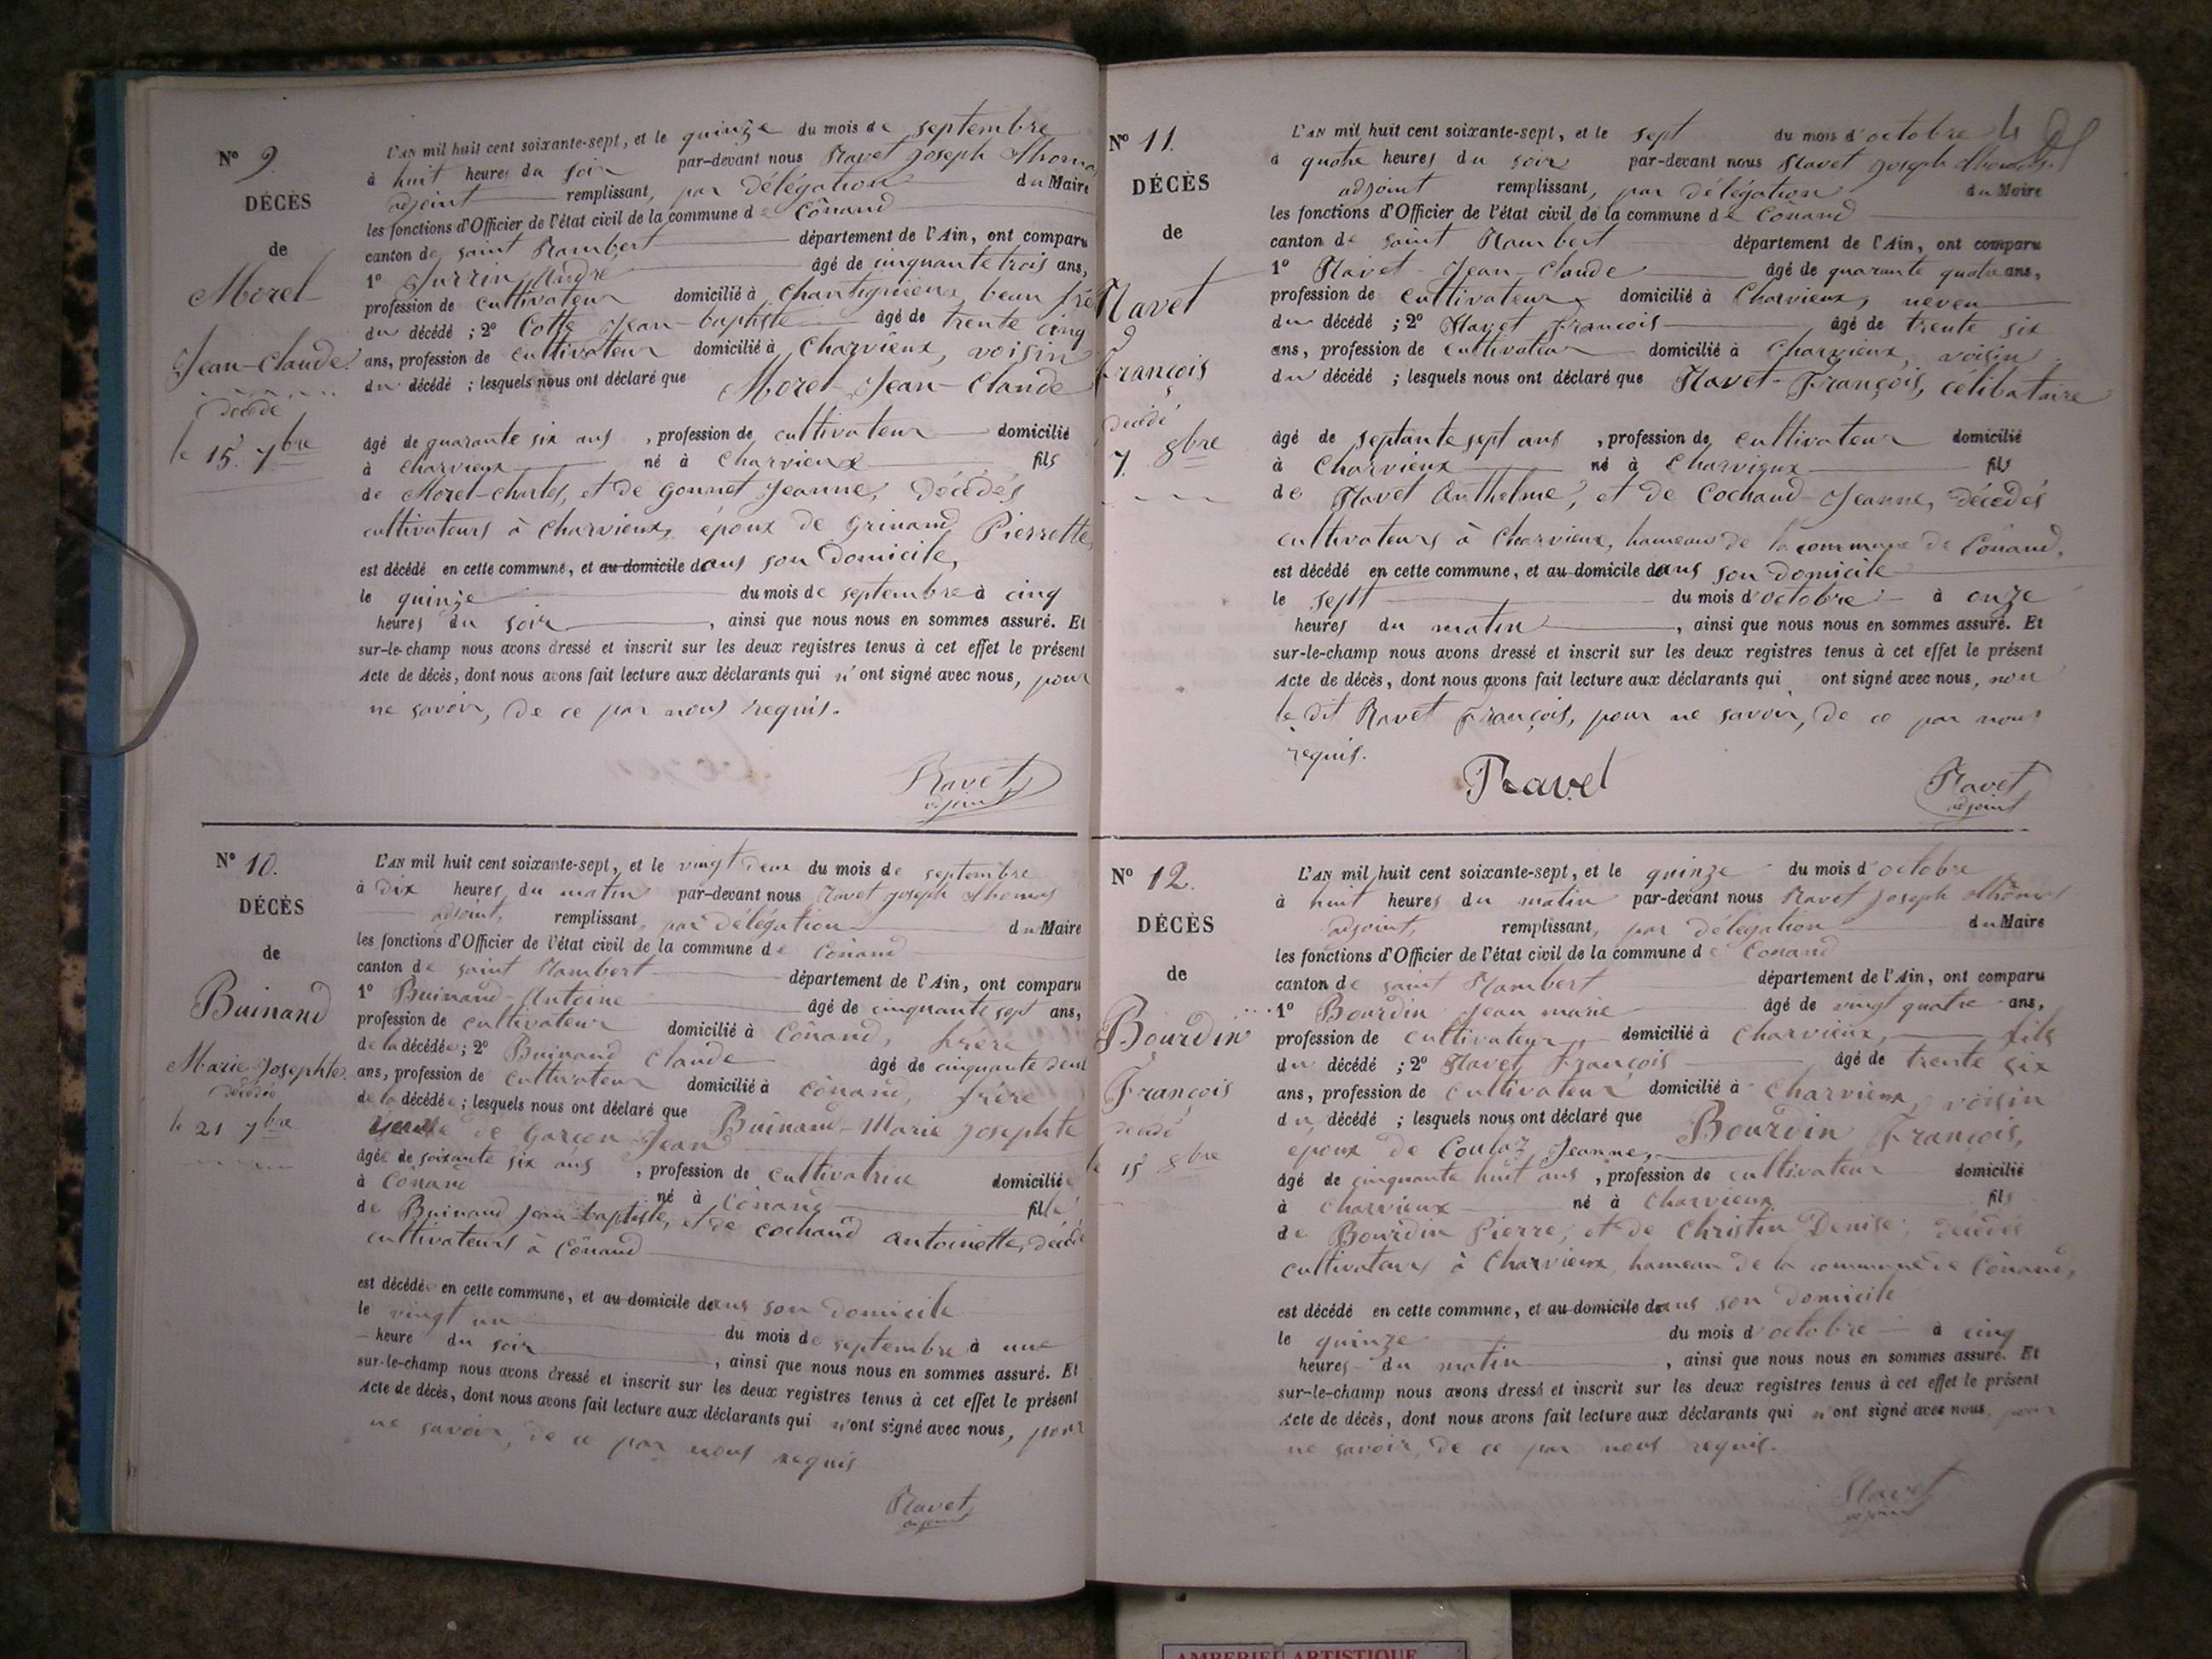 N° 9.
DÉCÈS
de
Morel
Jean-Claude.
décédé
le 15. 7bre
L'AN mil huit cent soixante-sept, et le quinze du mois de septembre
à huit heures du soir par-devant nous Ravet Joseph Thomas
adjoint remplissant, par délégation du Maire
les fonctions d'Officier de l'état civil de la commune de Cônand
canton de saint Rambert département de l'Ain, ont comparu
1° André âgé de cinquante trois ans,
profession de cultivateur domicilié à beau frè
du décédé ; 2° Cotte Jean-baptiste âgé de trente cinq
ans, profession de cultivateur domicilié à Charvieux, voisin
du décédé ; lesquels nous ont déclaré que Morel Jean-Claude
âgé de quarante six ans , profession de cultivateur domicilié
à Charvieux né à Charvieux fils
de Morel-Charles, et de Gonnet Jeanne, décédés
cultivateurs à Charvieux, époux de Grinand Pierrette,
est décédé en cette commune, et au domicile dans son domicile,
le quinze du mois de septembre à cinq
heures du soir , ainsi que nous nous en sommes assuré. Et
sur-le-champ nous avons dressé et inscrit sur les deux registres tenus à cet effet le présent
Acte de décès, dont nous avons fait lecture aux déclarants qui n'ont signé avec nous, pour
ne savoir, de ce par nous requis.
Ravet
adjoint
N° 10.
DÉCÈS
de
Buinand
Marie Josephte.
décédée
le 21 7bre
L'AN mil huit cent soixante-sept, et le vingt deux du mois de septembre
à dix heures du matin par-devant nous Ravet Joseph Thomas
adjoint, remplissant, par délégation du Maire
les fonctions d'Officier de l'état civil de la commune de Cônand
canton de saint Rambert département de l'Ain, ont comparu
1° Buinand-Antoine âgé de cinquante sept ans,
profession de cultivateur domicilié à Cônand, frère
de la décédée ; 2° Buinand Claude âgé de cinquante deux
ans, profession de cultivateur domicilié à Cônand, frère
de la décédée ; lesquels nous ont déclaré que Buinand-Marie Josephte
de Garçon Jean
âgée de soixante six ans , profession de cultivatrice domiciliée
à Cônand né à Cônand fille
de Buinand Jean-baptiste, et de Cochand Antoinette, décédé
cultivateurs à Cônand
est décédée en cette commune, et au domicile dans son domicile
le vingt un du mois de septembre à une
heure du soir , ainsi que nous nous en sommes assuré. Et
sur-le-champ nous avons dressé et inscrit sur les deux registres tenus à cet effet le présent
Acte de décès, dont nous avons fait lecture aux déclarants qui n'ont signé avec nous, pour
ne savoir, de ce par nous requis
Ravet
adjoint
N° 11.
DÉCÈS
de
Ravet
François
décédé
7. 8bre
L'AN mil huit cent soixante-sept, et le sept du mois d'octobre
à quatre heures du soir par-devant nous Ravet Joseph Thomas
adjoint remplissant, par délégation du Maire
les fonctions d'Officier de l'état civil de la commune de Cônand
canton de saint Rambert département de l'Ain, ont comparu
1° Ravet-Jean-Claude âgé de quarante quatre ans,
profession de cultivateur domicilié à Charvieux, neveu
du décédé ; 2° Ravet François âgé de trente six
ans, profession de cultivateur domicilié à Charvieux, voisin
du décédé ; lesquels nous ont déclaré que Ravet-François, célibataire
âgé de septante sept ans , profession de cultivateur domicilié
à Charvieux né à Charvieux fils
de Ravet Anthelme, et de Cochand-Jeanne, décédés
cultivateurs à Charvieux, hameau de la commune de Cônand,
est décédé en cette commune, et au domicile dans son domicile
le sept du mois d'octobre à onze
heures du matin , ainsi que nous nous en sommes assuré. Et
sur-le-champ nous avons dressé et inscrit sur les deux registres tenus à cet effet le présent
Acte de décès, dont nous avons fait lecture aux déclarants qui ont signé avec nous, non
le dit Ravet François, pour ne savoir, de ce par nous
requis.
Ravet
Ravet
adjoint
N° 12.
DÉCÈS
de
Bourdin
François
décédé
le 15 8bre
L'AN mil huit cent soixante-sept, et le quinze du mois d'octobre
à huit heures du matin par-devant nous Ravet Joseph Thômas
adjoint, remplissant, par délégation du Maire
les fonctions d'Officier de l'état civil de la commune de Conand
canton de saint Rambert département de l'Ain, ont comparu
1° Bourdin Jean marie âgé de vingt quatre ans,
profession de cultivateur, domicilié à Charvieux, fils
du décédé ; 2° Ravet François âgé de trente six
ans, profession de cultivateur domicilié à Charvieux, voisin
du décédé ; lesquels nous ont déclaré que Bourdin François,
époux de Coulaz Jeanne,
âgé de cinquante huit ans , profession de cultivateur domicilié
à Charvieux né à Charvieux fils
de Bourdin Pierre, et de Christin Denise, décédés
cultivateurs à Charvieux, hameau de la commune de Cônand,
est décédé en cette commune, et au domicile dans son domicile
le quinze du mois d'octobre à cinq
heures du matin , ainsi que nous nous en sommes assuré. Et
sur-le-champ nous avons dressé et inscrit sur les deux registres tenus à cet effet le présent
Acte de décès, dont nous avons fait lecture aux déclarants qui n'ont signé avec nous pour
ne savoir, de ce par nous requis.
Ravet
adjoint
AMBERIEU ARTISTIQUE